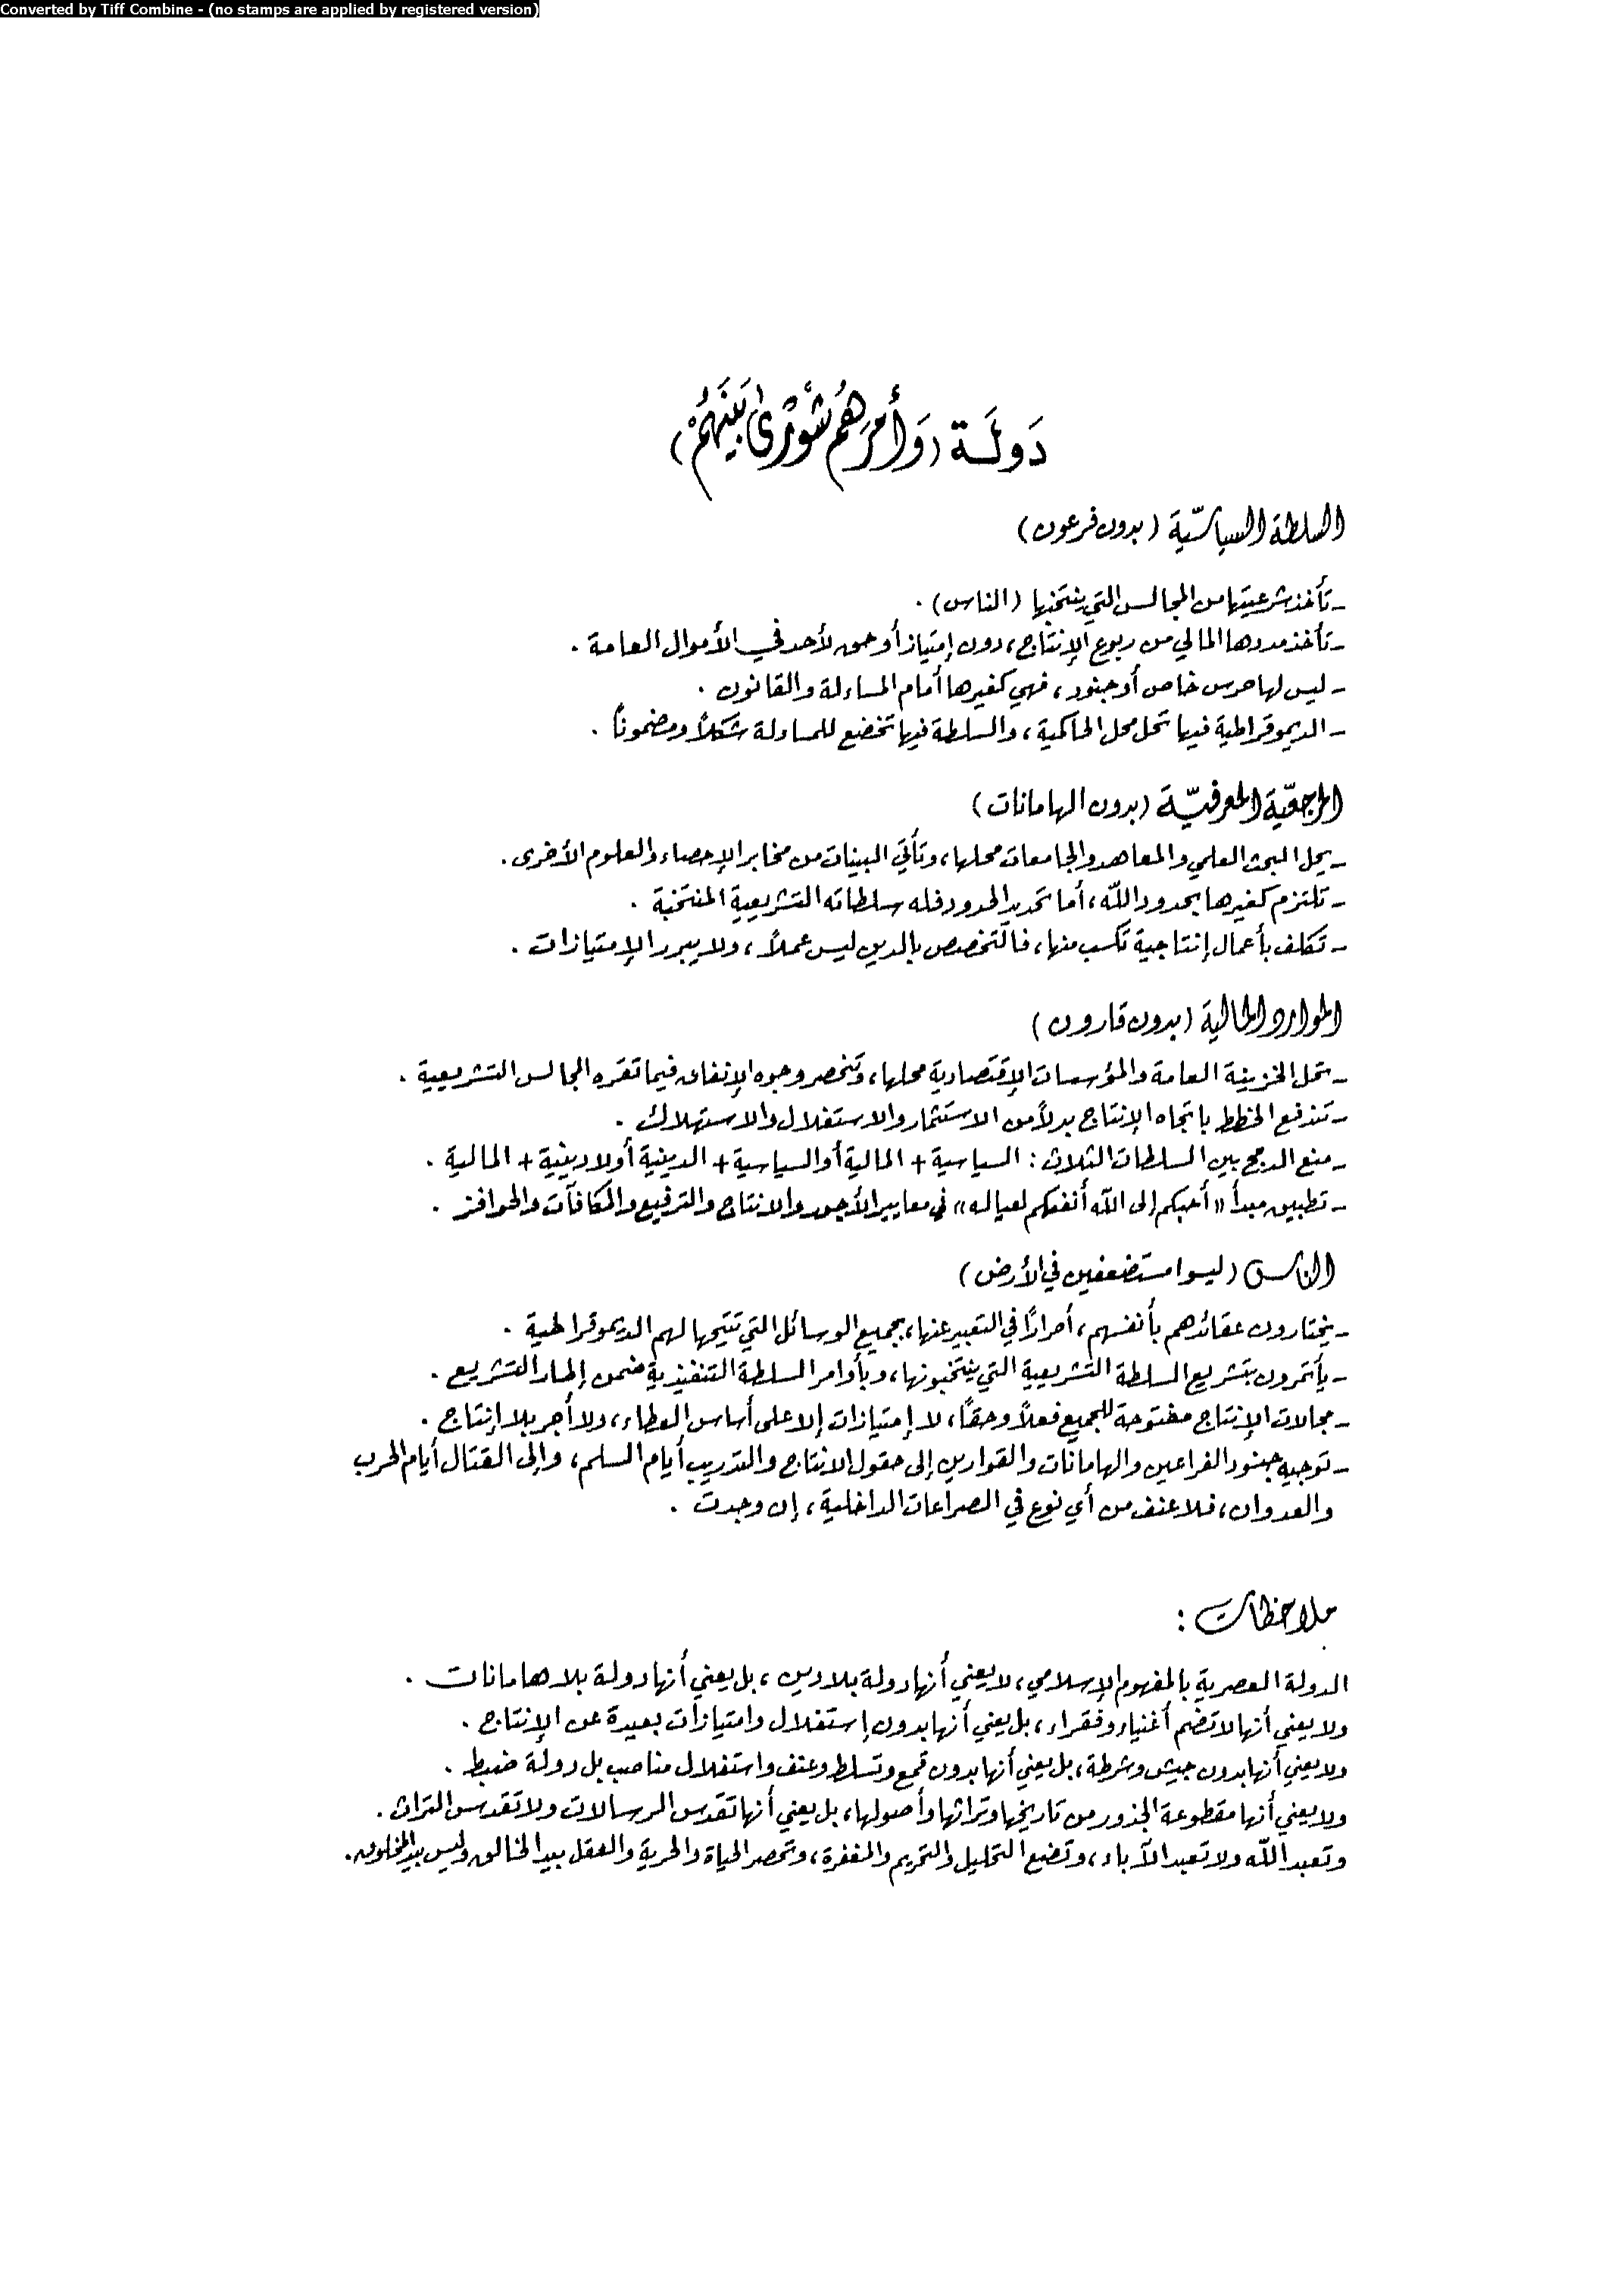 Converted by Tiff Combine - (no stamps are applied by registered version)
دَولَـة (وَأَمرُهُم شُوْرَىٰ بَيْنَهُمْ)
السلطة السياسّية (بدون فرعون)
- تأخذ شرعيتها من المجالس التي ينتخبها (الناس).
- تأخذ مددها المالي من ريوع الإنتاج، دون إمتياز أو حق لأحد في الأموال العامة.
- ليس لها حرس خاص أو جنود، فهي كغيرها أمام المساءلة والقانون.
- الديموقراطية فيها تحل محل الحاكمية، والسلطة فيها تخضع للمساءلة شكلاً ومضموناً.
المرجعيّة المعرفيّـة (بدون الهامانات)
- يحل البحث العلمي والمعاهد والجامعات محلها، وتأتي البينات من مخابر الإحصاء والعلوم الأخرى.
- تلتزم كغيرها بحدود الله، أما تحديد الحدود فله سلطاته التشريعية المنتخبة.
- تكلف بأعمال إنتاجية تكسب منها، فالتخصص بالدين ليس عملاً، ولا يبرر الإمتيازات.
الموارد المالية (بدون قارون)
- تحل الخزينة العامة والمؤسسات الإقتصادية محلها، وتنحصر وجوه الإنفاق فيما تقره المجالس التشريعية.
- تندفع الخطط باتجاه الإنتاج بدلاً من الاستثمار والاستغلال والاستهلاك.
- منع الدمج بين السلطات الثلاث: السياسية + المالية أو السياسية + الدينية أو لادينية + المالية.
- تطبيق مبدأ «أحبكم إلى الله أنفعكم لعياله» في معايير الأجور والانتاج والترفيع والمكافآت والحوافز.
الناس (ليسوا مستضعفين في الأرض)
- يختارون عقائدهم بأنفسهم، أحرارًا في التعبير عنها، بجميع الوسائل التي تتيحها لهم الديموقراطية.
- يأتمرون بتشريع السلطة التشريعية التي ينتخبونها، وبأوامر السلطة التنفيذية ضمن إطار التشريع.
- مجالات الإنتاج مفتوحة للجميع فعلاً وحقاً، لا إمتيازات إلا على أساس العطاء، ولا أجر بلا إنتاج.
- توجيه جنود الفراعين والهامانات والقوارين إلى حقول الانتاج والتدريب أيام السلم، وإلى القتال أيام الحرب
والعدوان، فلا عنف من أي نوع في الصراعات الداخلية، إن وجدت.
ملاحظات:
الدولة العصرية بالمفهوم الإسلامي، لا يعني أنها دولة بلا دين، بل يعني أنها دولة بلا هامانات.
ولا يعني أنها لا تضم أغنياء وفقراء، بل يعني أنها بدون إستغلال وامتيازات بعيدة عن الإنتاج.
ولا يعني أنها بدون جيش وشرطة، بل يعني أنها بدون قمع وتسلط وعنف واستغلال مناصب بل دولة ضبط.
ولا يعني أنها مقطوعة الجذور من تاريخها وتراثها وأصولها، بل يعني أنها تقدس الرسالات ولا تقدس التراث.
وتعبد الله ولا تعبد الآباء، وتضع التحليل والتحريم والمغفرة، وتحصر الحياة والحرية والعقل بيد الخالق وليس بيد المخلوق.